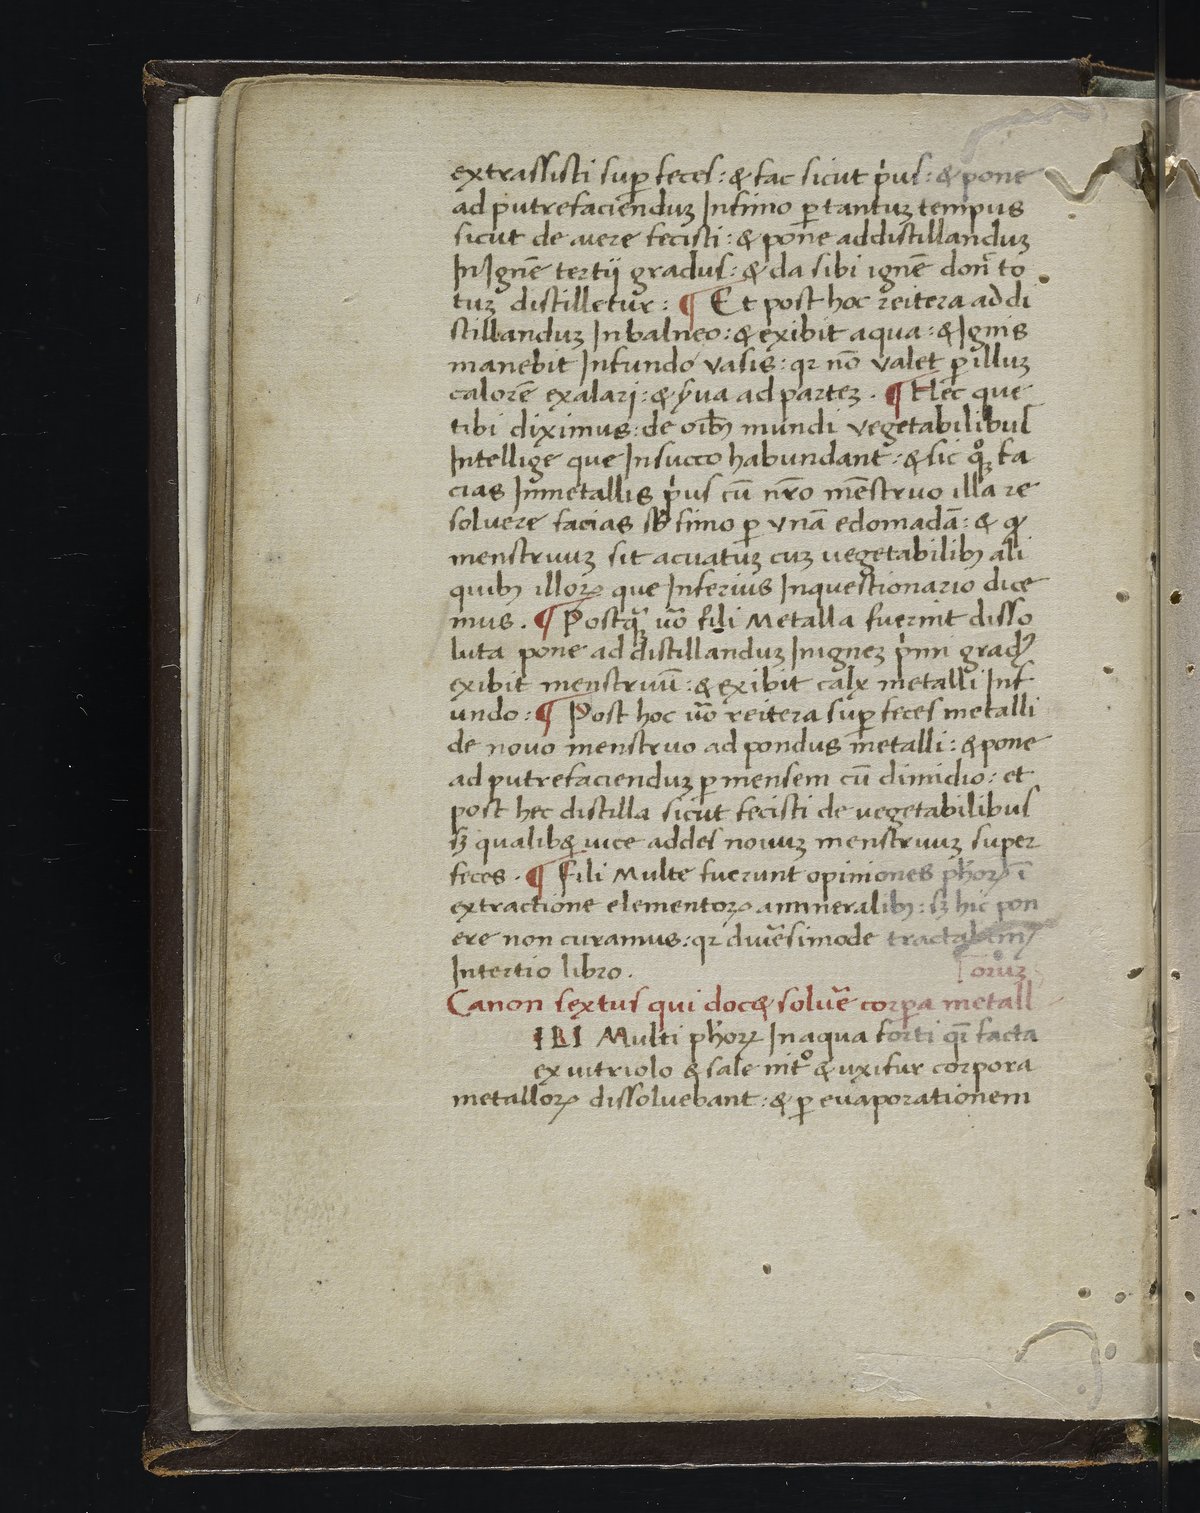 extrassisti sup̱ feces: & fac sicut p̍us: & pone
ad putrefacienduʒ Infimo p̱ tantuʒ tempus
sicut de aere fecisti: & pone addistillanduʒ
In Ignē tertij gradus: & da sibi ignē don̄ to
tuʒ distilletur: ¶ Et post hoc reitera addi
stillanduʒ In balneo: & exibit aqua: & Ignis
manebit Infundo vasis: qꝛ nō valet p̱ illuʒ
calorē exalari: & ẏua ad parteʒ. ¶ Hec que
tibi diximus: de oīb₉ mundi vegetabilibus
Intellige que Insucco habundant: & sic qͦʒ fa
cias In metallis p̍us cū nr̄o mēstruo illa re
soluere facias sƀ fimo p̱ vnā edomadā: & ꝙ
menstruuʒ sit acuatuʒ cuʒ uegetabilib₉ ali
quib₉ illoꝝ que Inferius Inquestionario dice
mus. ¶ Postqʒ̄ uō fili Metalla fuerint disso
luta pone ad distillanduʒ Inigneʒ p̍mi gradꝰ
exibit menstruū: & exibit calx metalli Inf
undo: ¶ Post hoc uō reitera sup̱ feces metalli
de nouo menstruo ad pondus metalli: & pone
ad putrefaciendum p̱ mensem cū dimidio: et
post hec distilla sicut fecisti de vegetabilibus
sʒ qualib& uice addes nouuʒ menstruuʒ super
feces. ¶ Fili Multe fuerunt opiniones ph̄oꝝ ī
extractione elementoꝝ amineralib₉: sʒ hic pon
ere non curamus: qꝛ diu̓simode
Intertio libro. Toruʒ
Canon sextus qui doc& solu̓e corpa metall
ILI Multi ph̄oꝝ In aqua forti q̄ ī facta
ex uitriolo & sale nitͦ & uxifur corpora
metalloꝝ dissoluebant: & p̱ euaporationem